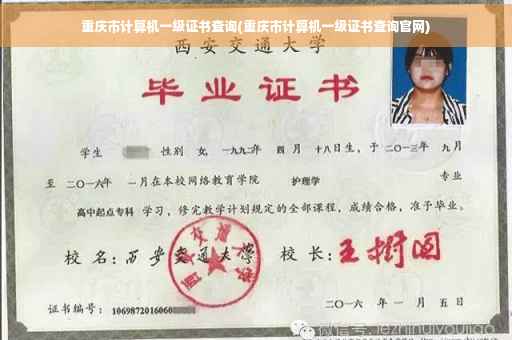 重庆市计算机一级证书查询(重庆市计算机一级证书查询官网)
西安交通大学
毕业证书
学生 性别 女, 一九九二年 四月 十八日生, 于 二〇一三年 九月
至 二〇一六年 一月在本校网络教育学院 护理学 专业
高中起点专科 学习, 修完教学计划规定的全部课程, 成绩合格, 准予毕业。
校名: 西安交通大学 校长: 王树国
西安交通大学
证书编号: 1069872016060
二〇一六年 一月五日
微信号: jezhinuiyoujiao